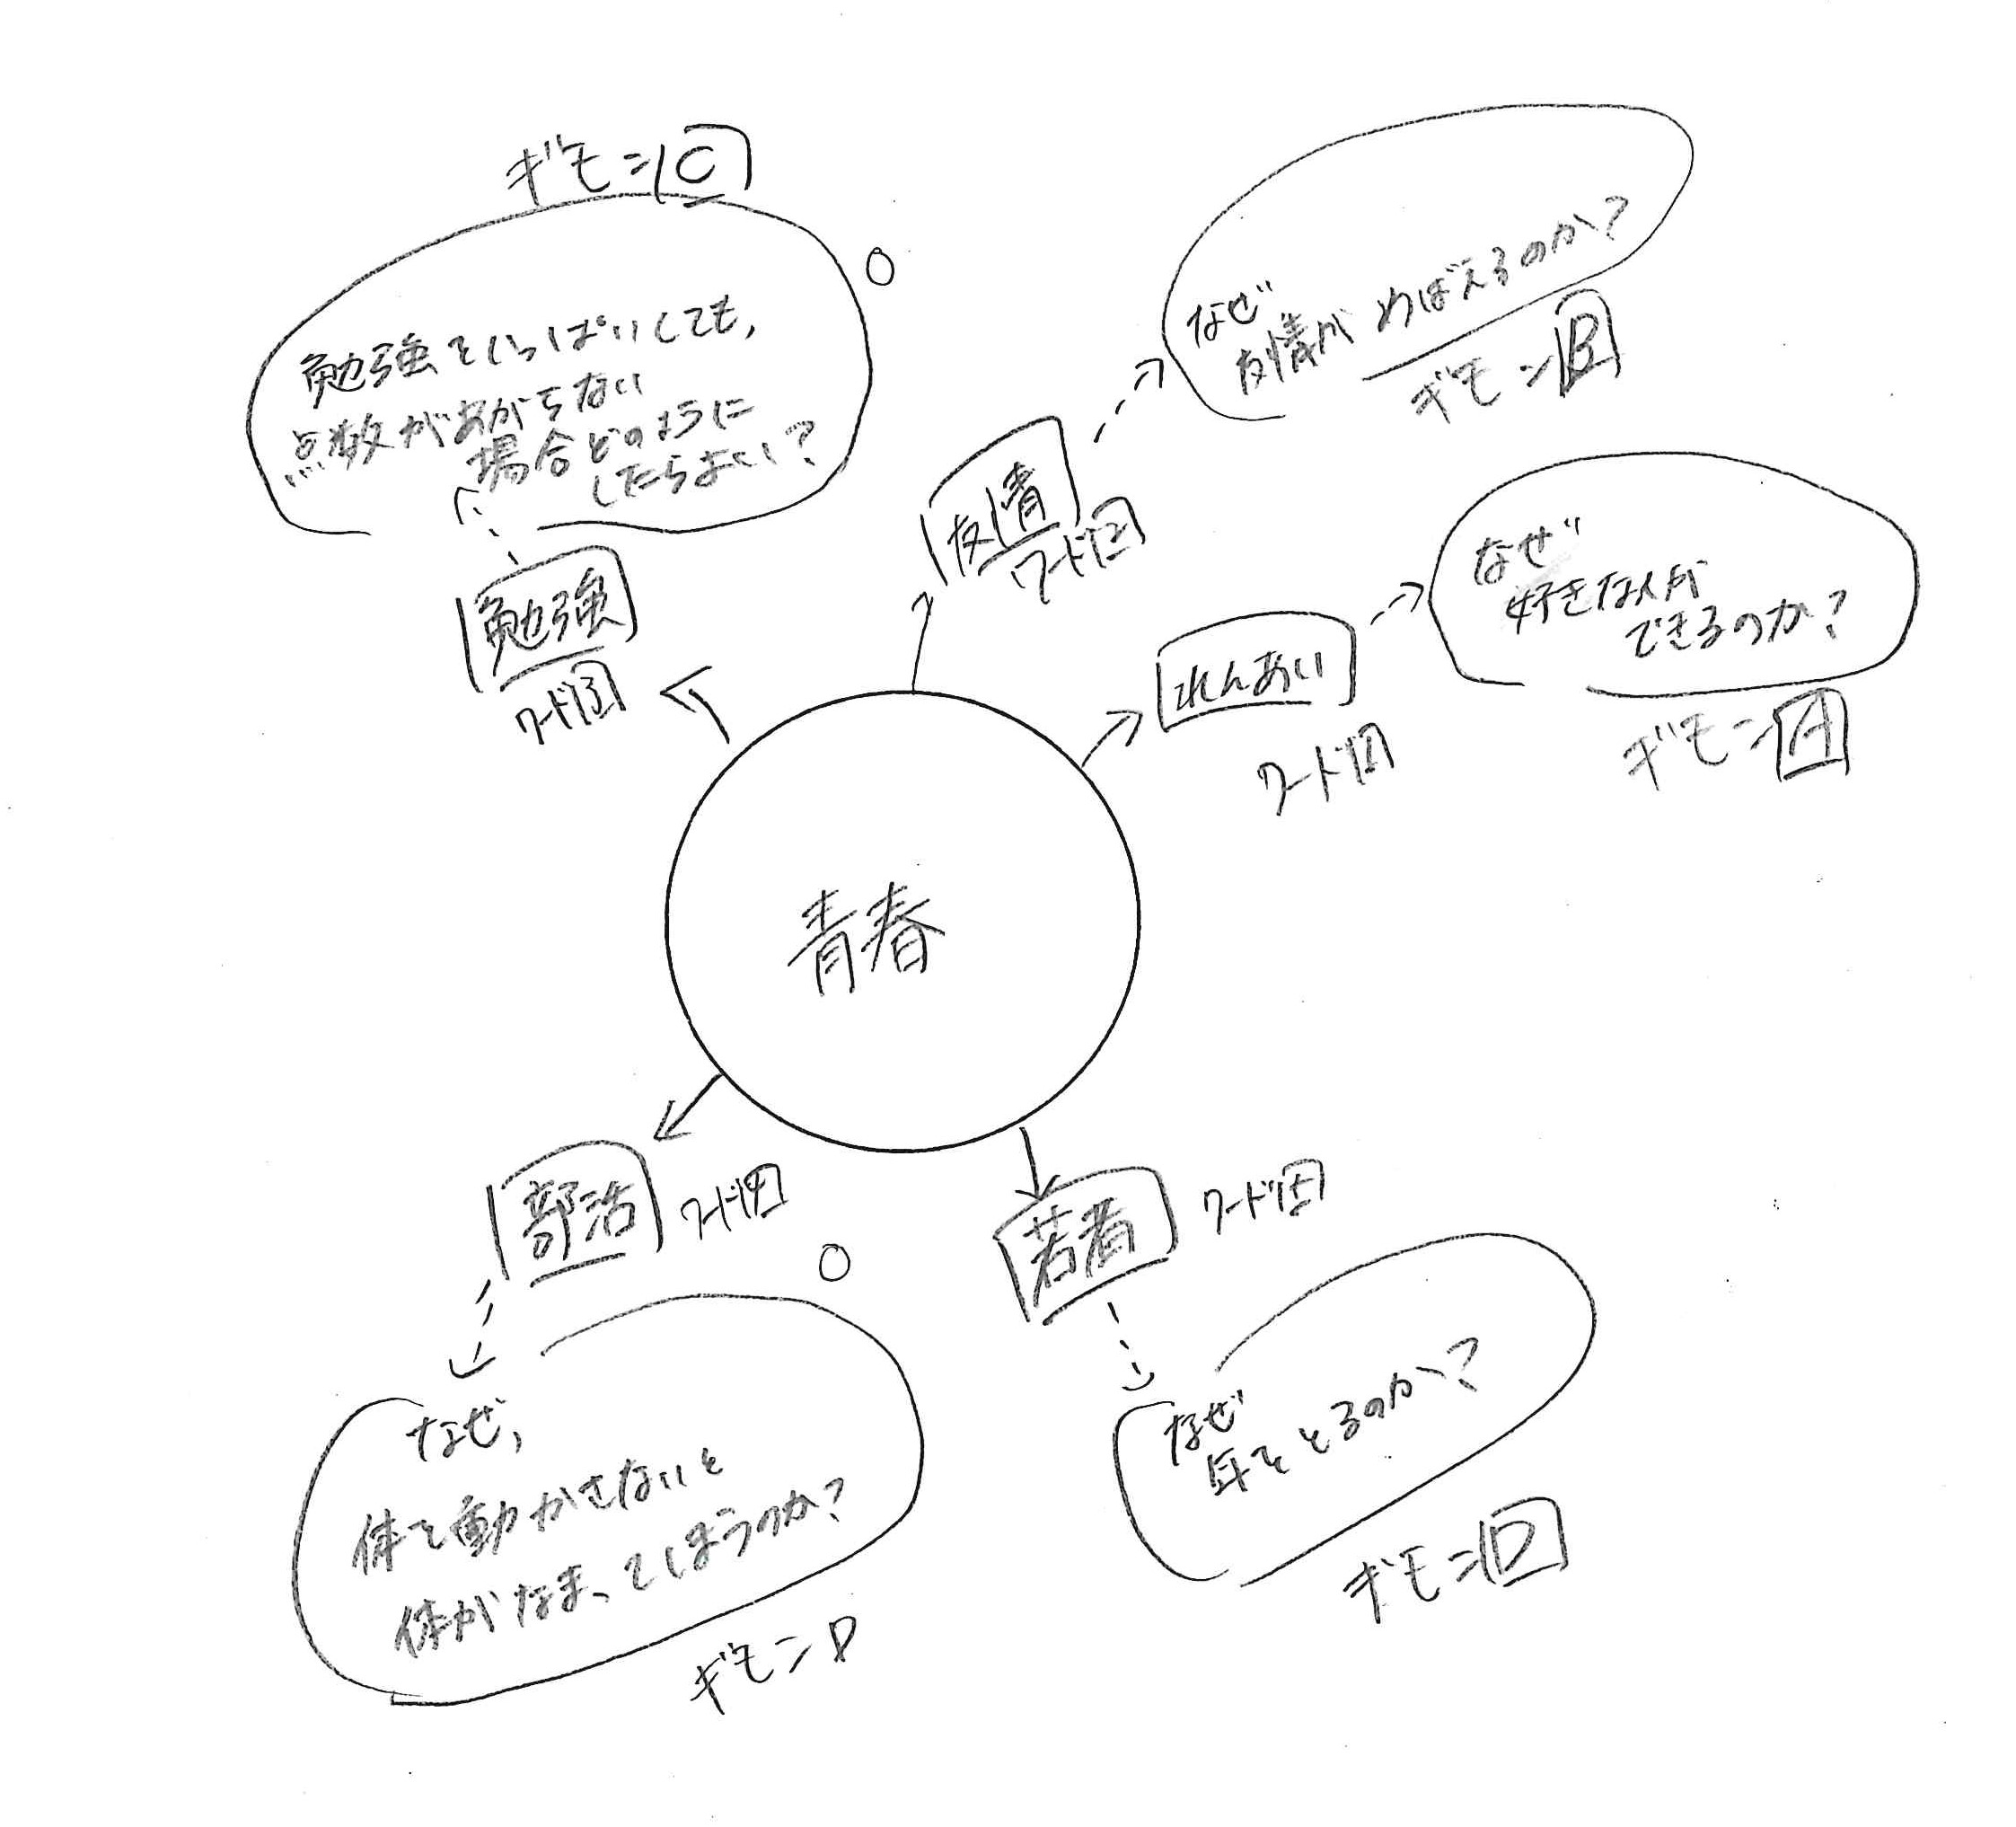 ギモンC
勉強をいっぱいしても,
点数があがらない
場合どのように
したらよい?
勉強
ワード3
なぜ
友情がめばえるのか?
ギモンB
友情
ワード2
なぜ
好きな人が
できるのか?
ギモンA
れんあい
ワード1
青春
部活
ワード4
なぜ,
体を動かさないと
体がなまってしまうのか?
ギモンD
若者
ワード5
なぜ
年をとるのか?
ギモンD